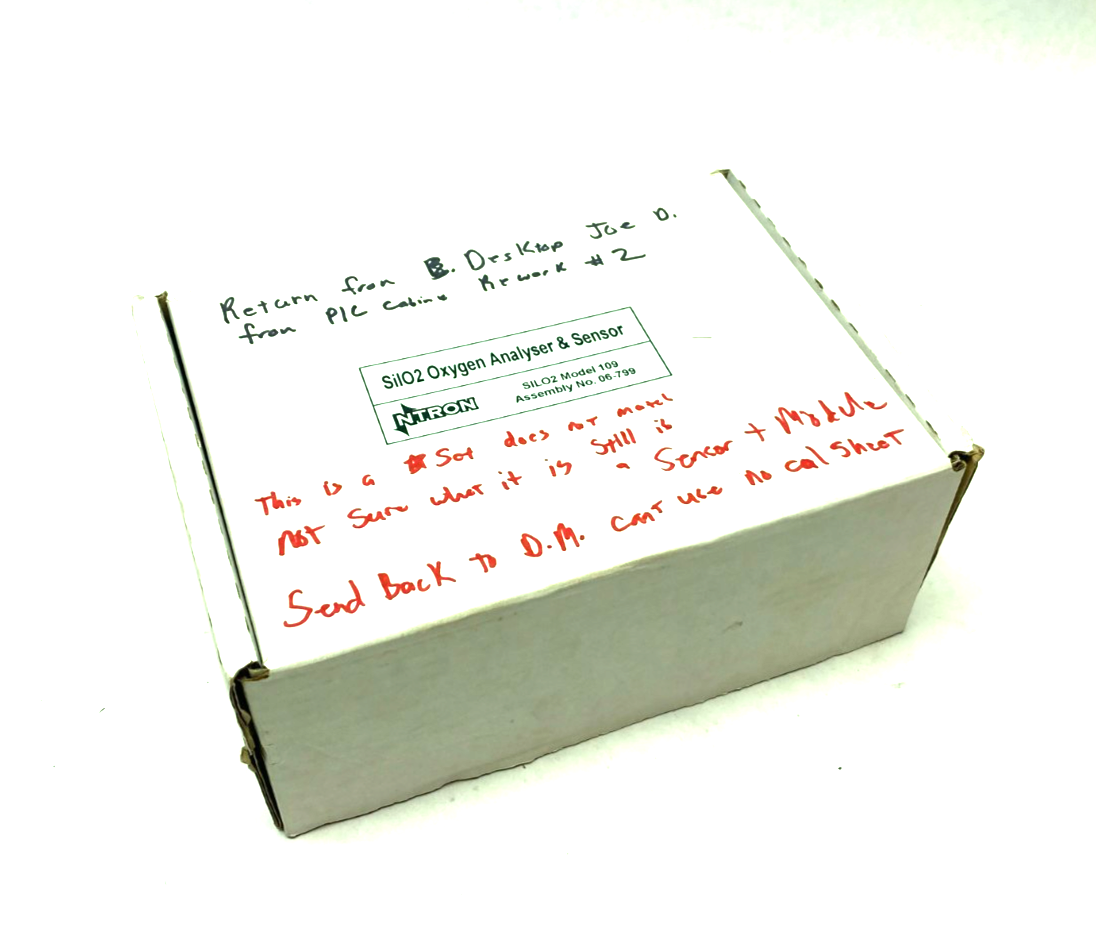 Return from B. Desktop Joe D.
from PIC Cabine Rework #2
SilO2 Oxygen Analyser & Sensor
NTRON
SILO2 Model 109
Assembly No. 06-799
This is a Set does not match
not sure what it is still is
a Sensor + Module
Send Back to D.M. can't use no cal sheet